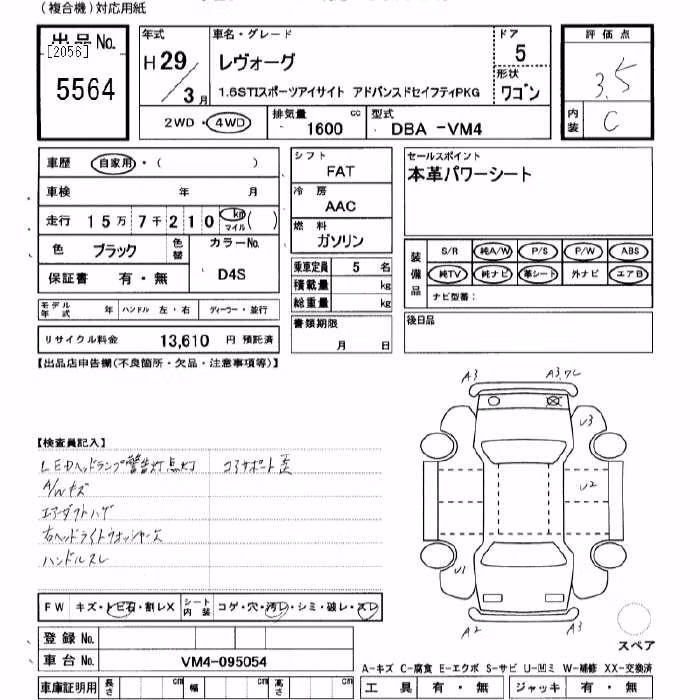 (複合機)対応用紙
出品No.
[2056]
5564
年式
H 29
3 月
車名・グレード
レヴォーグ
1.6STIスポーツアイサイト アドバンスドセイフティPKG
ドア
5
形状
ワゴン
評価点
3.5
内装
C
2WD・4WD
排気量
1600
cc
型式
DBA -VM4
車歴 自家用・( )
車検 年 月
走行 15万7千210 km マイル ( )
色 ブラック 色替
カラーNo.
D4S
保証書 有・無
モデル年式 年 ハンドル 左・右 ディーラー・並行
リサイクル料金 13,610 円 預託済
シフト
FAT
冷房
AAC
燃料
ガソリン
乗車定員 5 名
積載量 kg
総重量 kg
書類期限
月 日
セールスポイント
本革パワーシート
装備品
S/R 純A/W P/S P/W ABS
純TV 純ナビ 革シート 外ナビ エアB
ナビ型番:
後日品
【出品店申告欄(不良箇所・欠品・注意事項等)】
【検査員記入】
LEDヘッドランプ警告灯点灯 コアサポート歪
A/Wキズ
エアーダクトハガ
右ヘッドライトウォッシャー欠
ハンドルスレ
A3
A3,7C
U3
U2
U1
A2
A3
スペア
FW キズ・トビ石・割レX シート内装 コゲ・穴・汚レ・シミ・破レ・スレ
登録No.
車台No. VM4-095054
車庫証明用 長さ cm 幅 cm 高さ cm
A-キズ C-腐食 E-エクボ S-サビ U-凹ミ W-補修 XX-交換済
工具 有・無 ジャッキ 有・無